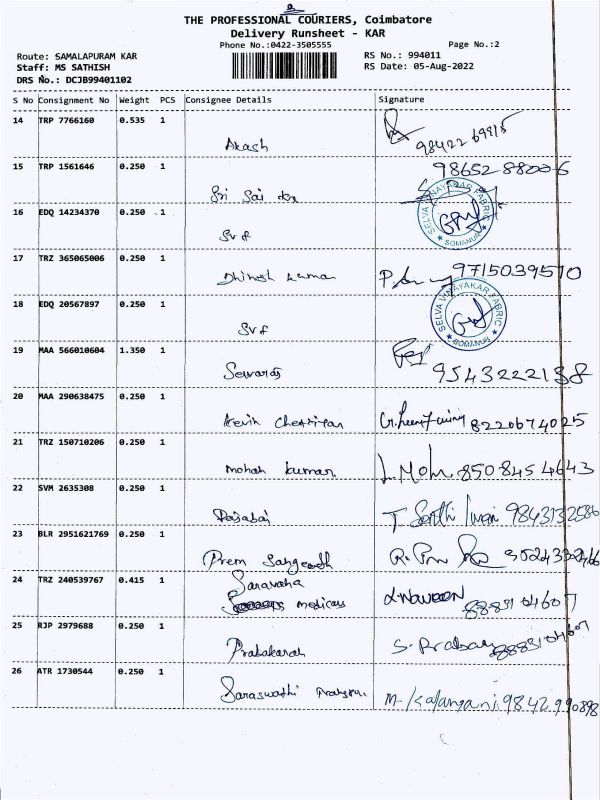 THE PROFESSIONAL COURIERS, Coimbatore
Delivery Runsheet - KAR
Phone No.:0422-3505555
Page No.:2
Route: SAMALAPURAM KAR
RS No.: 994011
Staff: MS SATHISH
RS Date: 05-Aug-2022
DRS No.: DCJB99401102
S No Consignment No Weight PCS Consignee Details Signature
14 TRP 7766160 0.535 1
Akash
15 TRP 1561646 0.250 1 98652 88006
Sri Sai
SELVA VINAYAKAR FABRIC
SOMANUR
16 EDQ 14234370 0.250 1
SVF
17 TRZ 365065006 0.250 1
9715039510
18 EDQ 20567897 0.250 1
SELVA VINAYAKAR FABRIC
SOMANUR
SVF
19 MAA 566010604 1.350 1
9543222138
20 MAA 290638475 0.250 1
Kevin 8220674025
21 TRZ 150710206 0.250 1
Mohan Kumar L. Moh 8508454643
22 SVM 2635308 0.250 1
9843132586
23 BLR 2951621769 0.250 1
Prem Sangeeth
24 TRZ 240539767 0.415 1
Saravana
medicals
25 RJP 2979688 0.250 1
Prabakaran
26 ATR 1730544 0.250 1
Saraswathi 9842990898